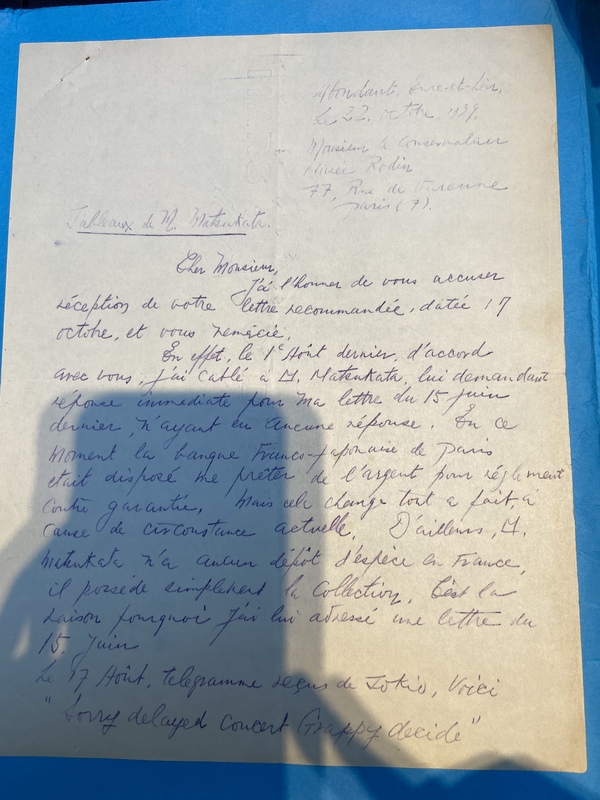 Abondant. Eure-et-Loir.
Le 22. octbre, 1939.
Monsieur le Conservateur
Musée Rodin
77, Rue de Varenne
paris (7).
Tableaux de M. Matsukata.
Cher Monsieur,
J'ai l'honner de vous accuser
réception de votre lettre recommandée, datée 17
octbre, et vous remécie.
En effet, le 1er Août dernier, d'accord
avec vous, j'ai cablé à M. Matsukata, lui demandant
réponse immédiate pour ma lettre du 15 juin
dernier, n'ayant eu aucune réponse. En ce
moment la banque Franco-japonaise de Paris
etait disposé me prêter de l'argent pour réglement
contre garantie, Mais cela change tout a fait, à
cause de circonstance actuelle. D'ailleurs, M.
Matsukata n'a aucun dépôt d'espèce en France,
il posséde simplement la Collection. C'est la
raison pourquoi j'ai lui adressé une lettre du
15. Juin
Le 17 Août, telegramme reçus de Tokio, Voici
"Sorry delayed concert Grappy decide"